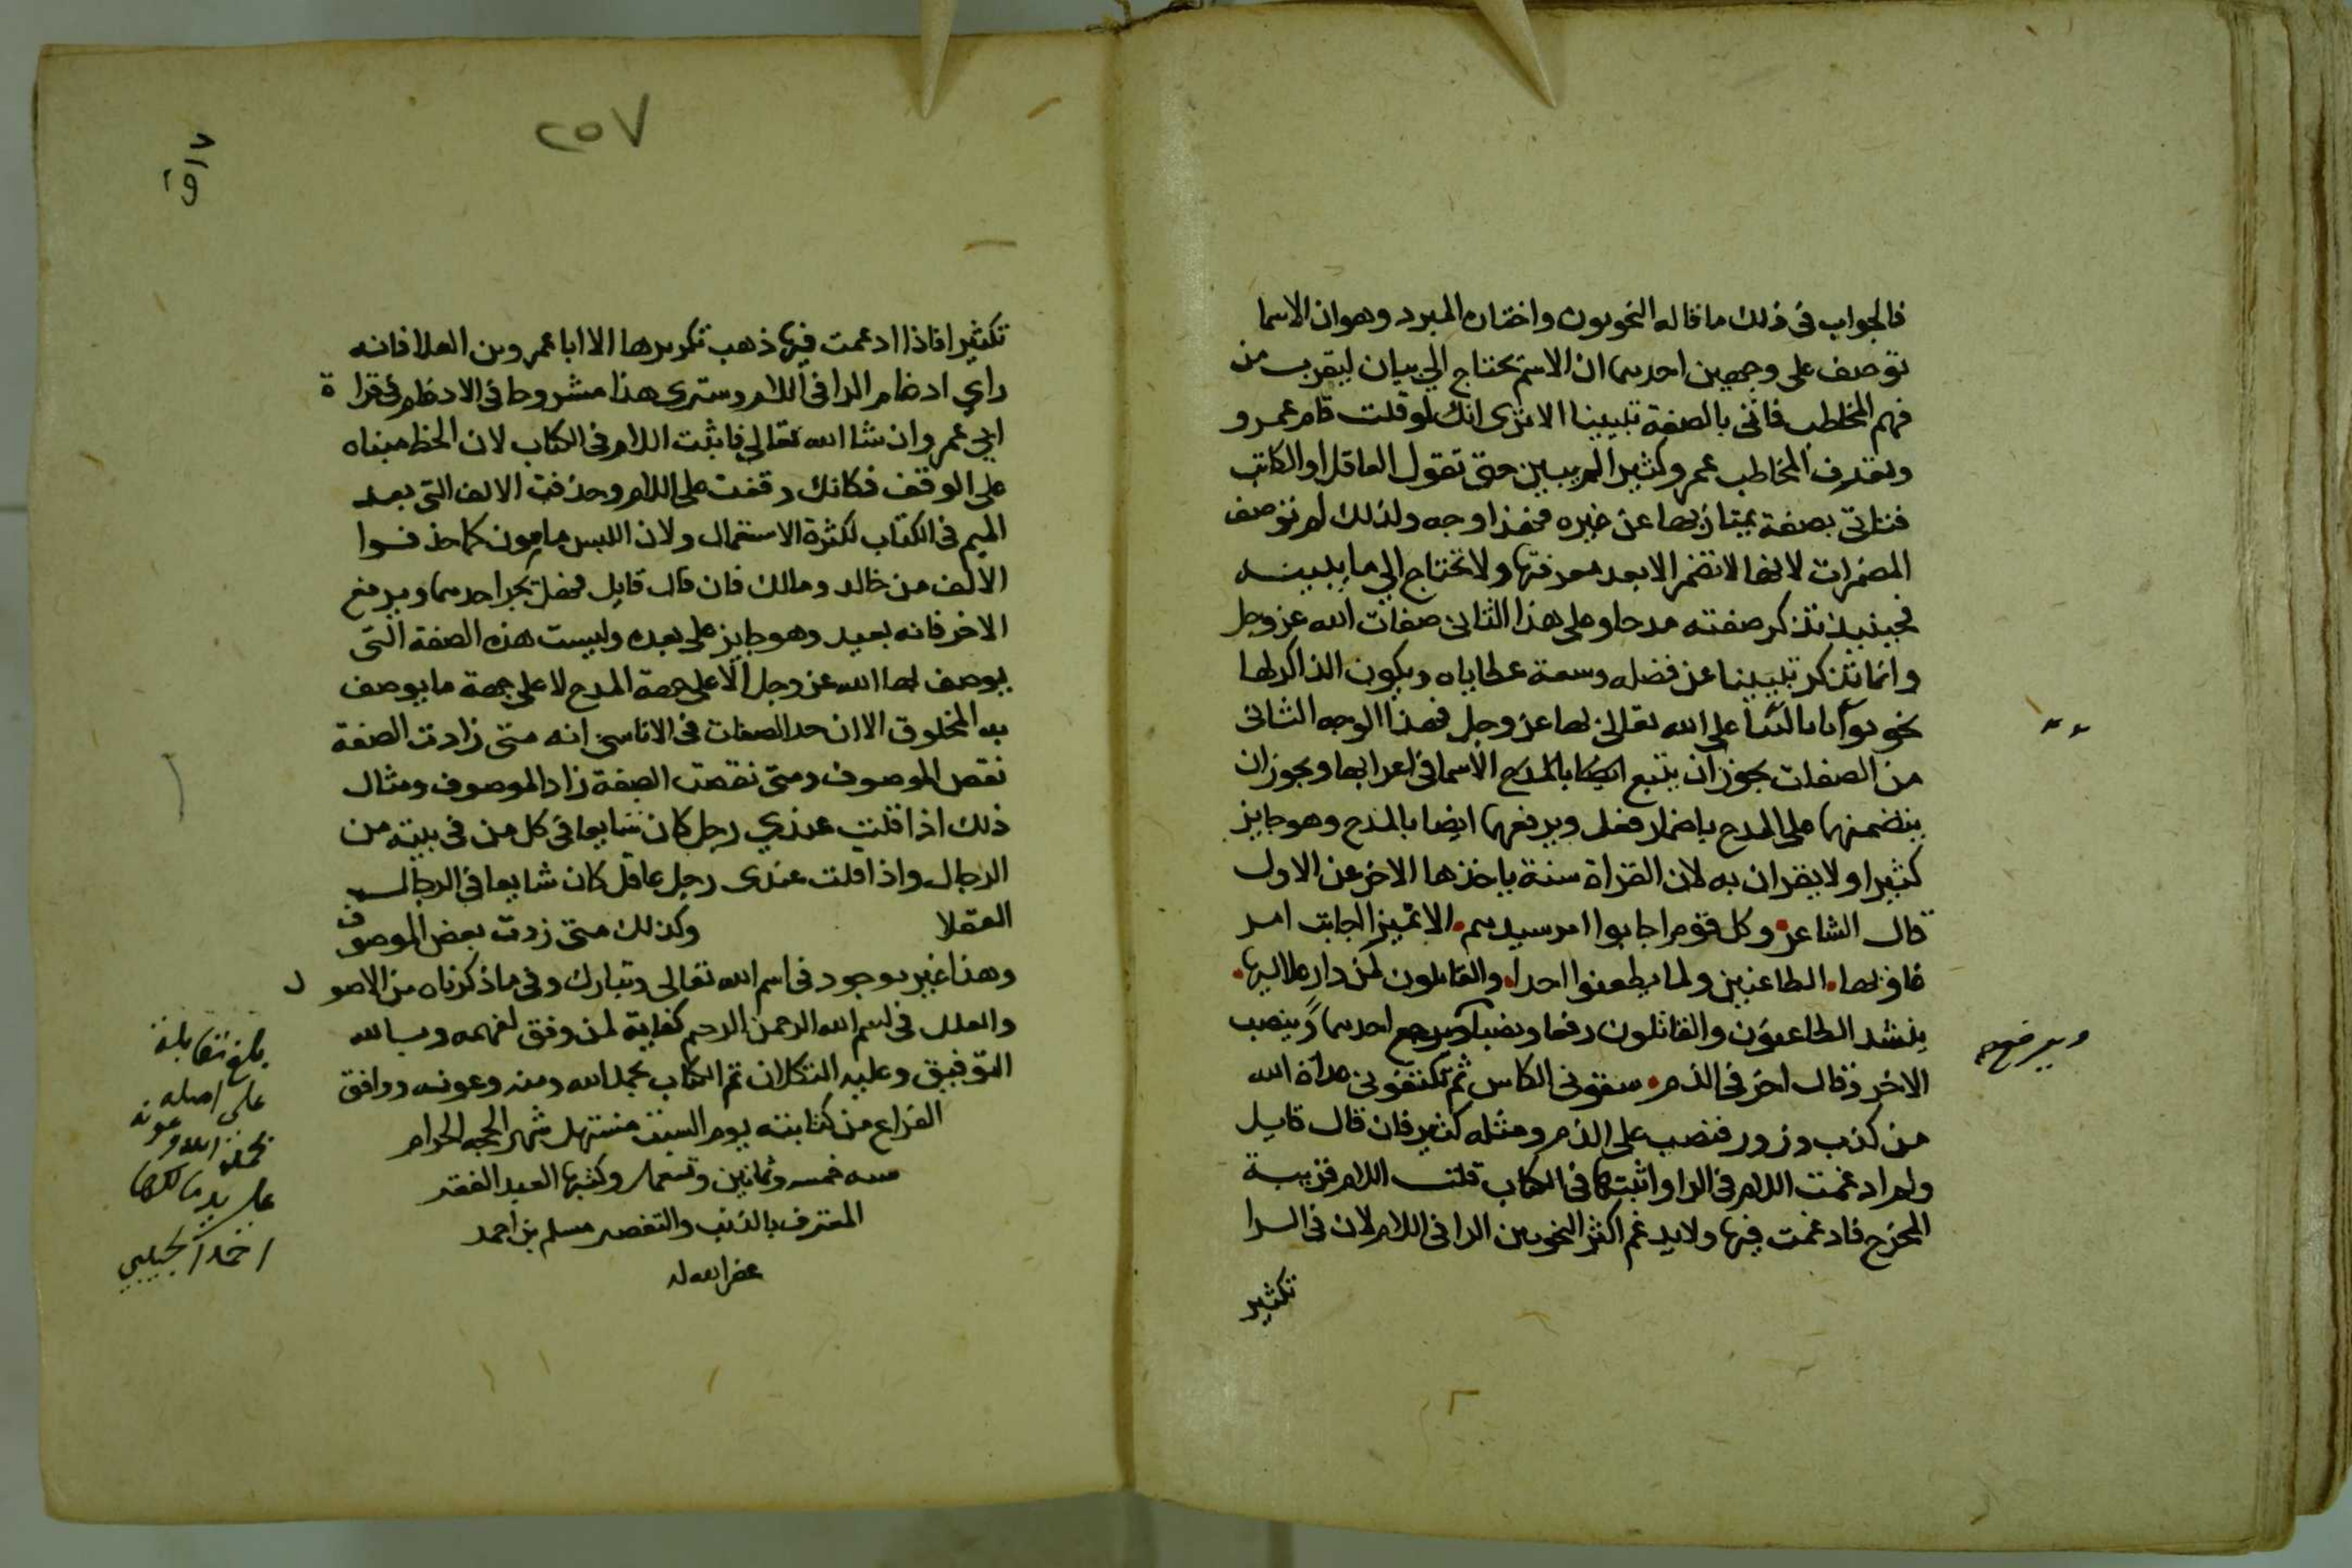 فالجواب في ذلك ما قاله النحويون واختاره المبرد وهو ان الاسما
توصف على وجهين احدهما ان الاسم يحتاج الي بيان ليقرب من
فهم المخاطب فاتي بالصفة تبيينا الا ترى انك لو قلت قام عمرو
وتعدف المخاطب عمرو كثير المريبين حتى تقول العاقل او الكاتب
فتاتي بصفة يمتاز بها عن غيره فهذا وجه ولذلك لم توصف
المضمرات لانها لا تضمر الا بعد معرفتها ولا تحتاج الي ما يبينه
فحينيذ تذكر صفته مدحا وعلى هذا الثاني صفات الله عز وجل
وانما تذكر تبيينا عن فضله وسعة عطاياه ويكون الذاكر لها
نحو ثوابا بالثنا على الله تعالى بها عز وجل فهذا الوجه الثاني
من الصفات يجوز ان يتبع ايضا بالمدح الاسما في اعرابها ويجوز ان
ينضمنها على المدح باضمار فعل ويرفعها ايضا بالمدح وهو جايز
كثيرا ولا يقران به لان القراة سنة ياخذها الاخر عن الاول
قال الشاعر وكل قوم اجابوا امر سيدهم الا نميرا اجابت امر
غاويها الطاعنين ولما يطعنوا احدا والقايلون لمن دار خلاليها
ينشد الطاعنون والقائلون رفعا ونصبا ويرجع احدهما وينصب
ويرفع
الاخر وقال اخر في الذم سقوني الكاس ثم تكنفوني عداة الله
من كذب وزور فنصب على الذم ومثله كثير فان قال قايل
ولم ادغمت اللام في الرا واثبتها في الكتاب قلت اللام قريبة
المخرج فادغمت فيها ولا يدغم اكثر النحويين الرا في اللام لان في الرا
تكثير
٢٥٧
تكثيرا فاذا ادغمت فيها ذهب تكريرها الا ابا عمرو بن العلا فانه
راي ادغام الرا في اللام وسترى هذا مشروحا في الادغام في قراة
ابي عمرو ان شا الله تعالي فاثبت اللام في الكتاب لان الخط مبناه
على الوقف فكانك وقفت على اللام وحذفت الالف التي بعد
الميم في الكتاب لكثرة الاستعمال ولان اللبس مامون كما حذفوا
الالف من خالد ومالك فان قال قايل فهل يجر احدهما ويرفع
الاخر فانه بعيد وهو جايز على بعده وليست هذه الصفة التي
يوصف بها الله عز وجل الا على جهة المدح لا على جهة ما يوصف
به المخلوق الا ان حد الصفات في الاناسي انه متى زادت الصفة
نقص الموصوف ومتى نقصت الصفة زاد الموصوف ومثال
ذلك اذا قلت عندي رجل كان شايعا في كل من في بيته من
الرجال واذا قلت عندى رجل عاقل كان شايعا في الرجال
العقلا وكذلك متى زدت بعض الموصوف
وهذا غير موجود في اسم الله تعالى وتبارك وفي ما ذكرناه من الاصول
والعلل في بسم الله الرحمن الرحيم كفاية لمن وفق لفهمه وبالله
التوفيق وعليه التكلان تم الكتاب بحمد الله ومنه وعونه ووافق
الفراغ من كتابته يوم السبت مستهل شهر الحجه الحرام
سنه خمسه وثمانين وتسعماية وكتبها العبد الفقير
المعترف بالذنب والتقصير مسلم بن احمد
غفر الله له
بلغ مقابلة
على اصله
بحمد الله وعونه
على يد مالكها